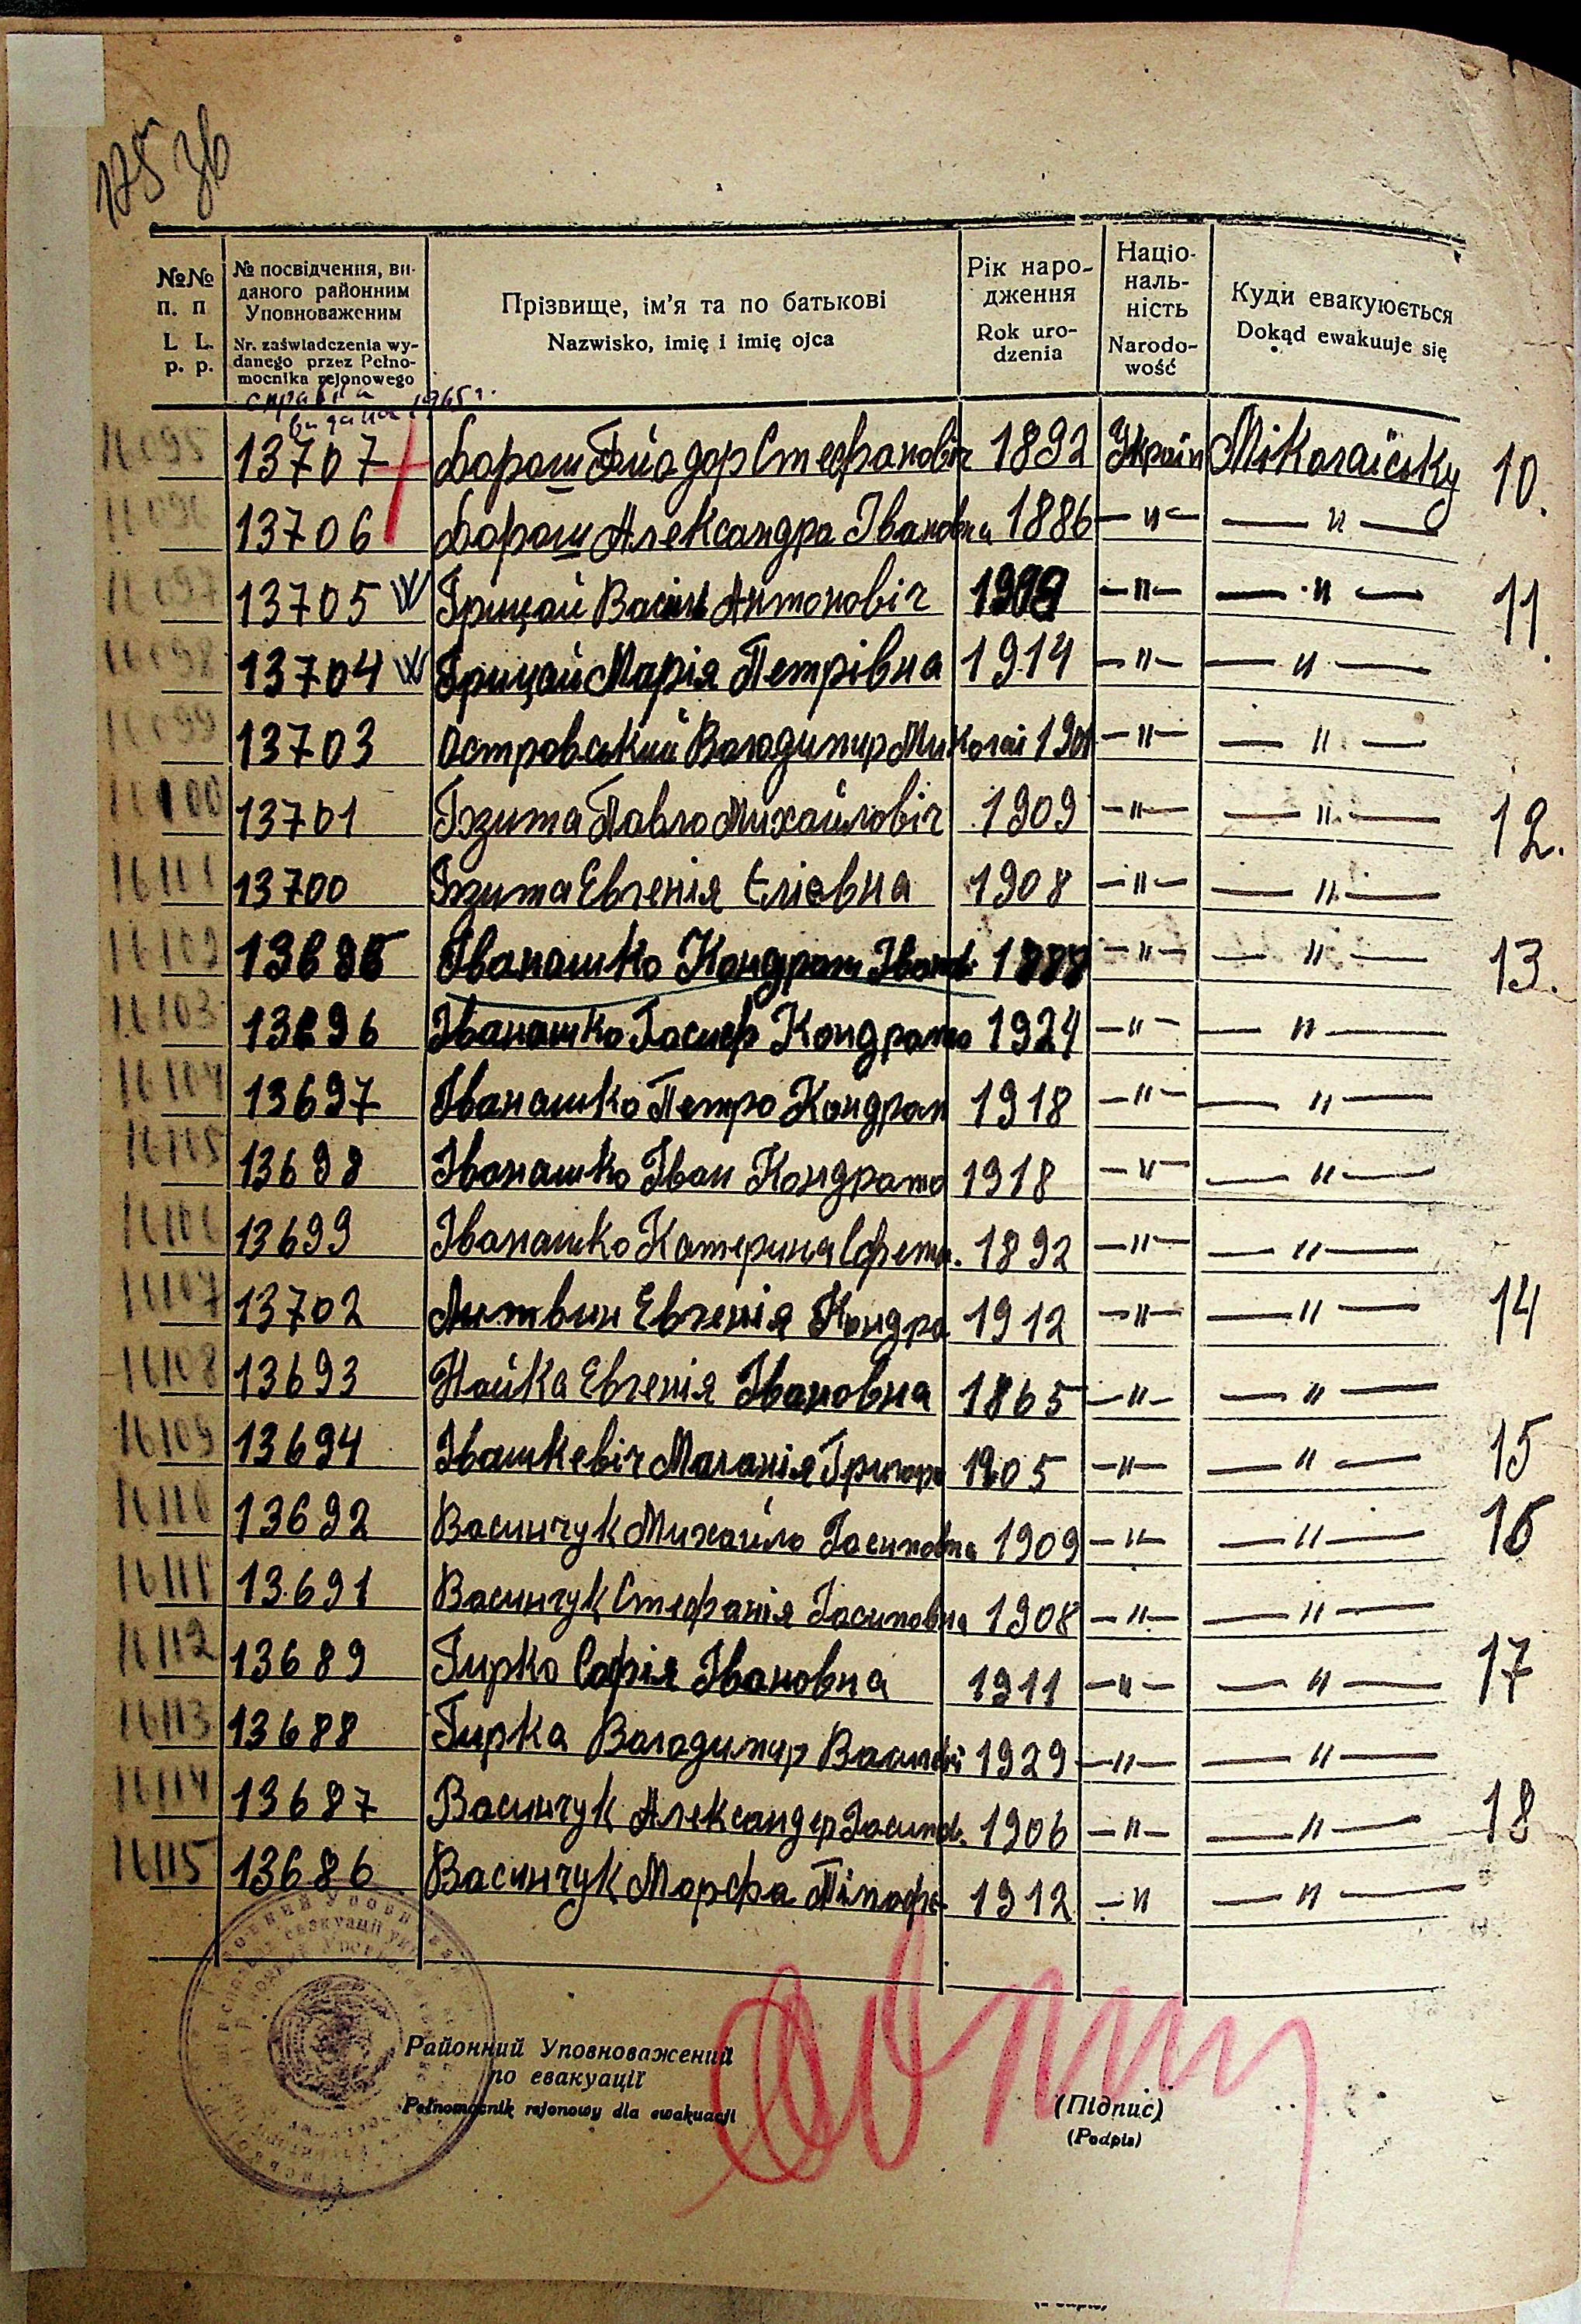 175 зв
№№ п. п
L. L. p. p.
№ посвідчення, виданого районним Уповноваженим
Nr. zaświadczenia wydanego przez Pełnomocnika rejonowego
Прізвище, ім'я та по батькові
Nazwisko, imię i imię ojca
Рік народження
Rok urodzenia
Національність
Narodowość
Куди евакуюється
Dokąd ewakuuje się
справка видана 1965 г.
16095 13707 Дорош Фйодор Стефановіч 1892 Україн Міколаївську 10.
16096 13706 Дорош Александра Івановна 1886 —〃— —〃—
16097 13705 Грицай Васіль Антоновіч 1909 —〃— —〃— 11.
16098 13704 Грицай Марія Петрівна 1914 —〃— —〃—
16099 13703 Островський Володимир Миколай 1901 —〃— —〃—
16100 13701 Ґзита Павло Михайловіч 1909 —〃— —〃— 12.
16101 13700 Ґзита Евгенія Елієвна 1908 —〃— —〃—
16102 13695 Іванашко Кондрат Іванов 1888 —〃— —〃— 13.
16103 13696 Іванашко Йосиф Кондрато 1924 —〃— —〃—
16104 13697 Іванашко Петро Кондрат 1918 —〃— —〃—
16105 13698 Іванашко Іван Кондрато 1918 —〃— —〃—
16106 13699 Іванашко Катерина 1892 —〃— —〃—
16107 13702 Литвин Евгенія Кондра 1912 —〃— —〃— 14
16108 13693 Найка Евгенія Івановна 1865 —〃— —〃—
16109 13694 Івашкевіч Маланія Григоро 1905 —〃— —〃— 15
16110 13692 Васинчук Михайло 1909 —〃— —〃— 16
16111 13691 Васинчук Стефанія 1908 —〃— —〃—
16112 13689 Гирко Софія Івановна 1911 —〃— —〃— 17
16113 13688 Гирка Володимир Василеві 1929 —〃— —〃—
16114 13687 Васинчук Александер 1906 —〃— —〃— 18
16115 13686 Васинчук Марфа 1912 —〃 —〃—
Районний Уповноважений
по евакуації
Pełnomocnik rejonowy dla ewakuacji
(Підпис)
(Podpis)